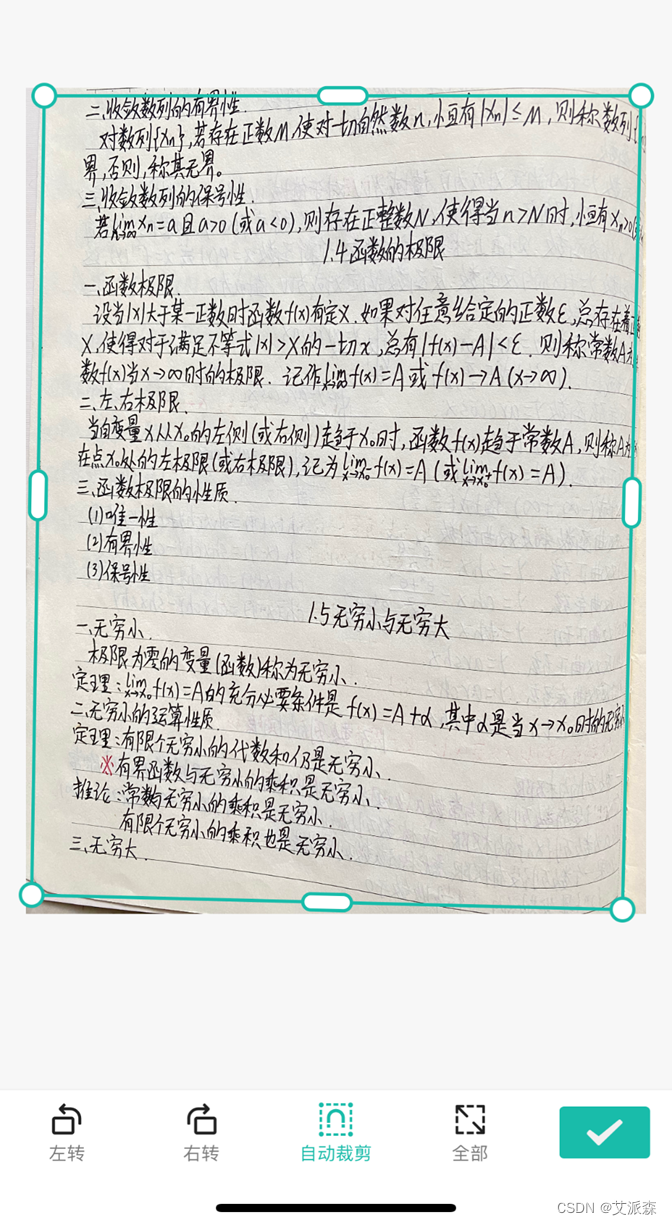 二.收敛数列的有界性.
对数列{xn},若存在正数M,使对一切自然数n,恒有|xn|≤M,则称数列
界,否则,称其无界。
三.收敛数列的保号性.
若lim xn=a且a>0(或a<0),则存在正整数N,使得当n>N时,恒有xn>0
1.4函数的极限
一.函数极限.
设当|x|大于某一正数时函数f(x)有定义.如果对任意给定的正数ε,总存在着正
X,使得对于满足不等式|x|>X的一切x,总有|f(x)-A|<ε.则称常数A为
数f(x)当x→∞时的极限.记作lim x→∞ f(x)=A或f(x)→A(x→∞).
二.左、右极限.
当自变量x从x0的左侧(或右侧)趋于x0时,函数f(x)趋于常数A,则称A为
在点x0处的左极限(或右极限),记为lim x→x0⁻ f(x)=A(或lim x→x0⁺ f(x)=A).
三.函数极限的性质.
(1)唯一性
(2)有界性
(3)保号性
1.5无穷小与无穷大
一.无穷小.
极限为零的变量(函数)称为无穷小.
定理:lim x→x0 f(x)=A的充分必要条件是f(x)=A+α,其中α是当x→x0时的无穷小
二.无穷小的运算性质
定理:有限个无穷小的代数和仍是无穷小.
※有界函数与无穷小的乘积是无穷小.
推论:常数与无穷小的乘积是无穷小.
有限个无穷小的乘积也是无穷小.
三.无穷大.
左转
右转
自动裁剪
全部
CSDN @艾派森